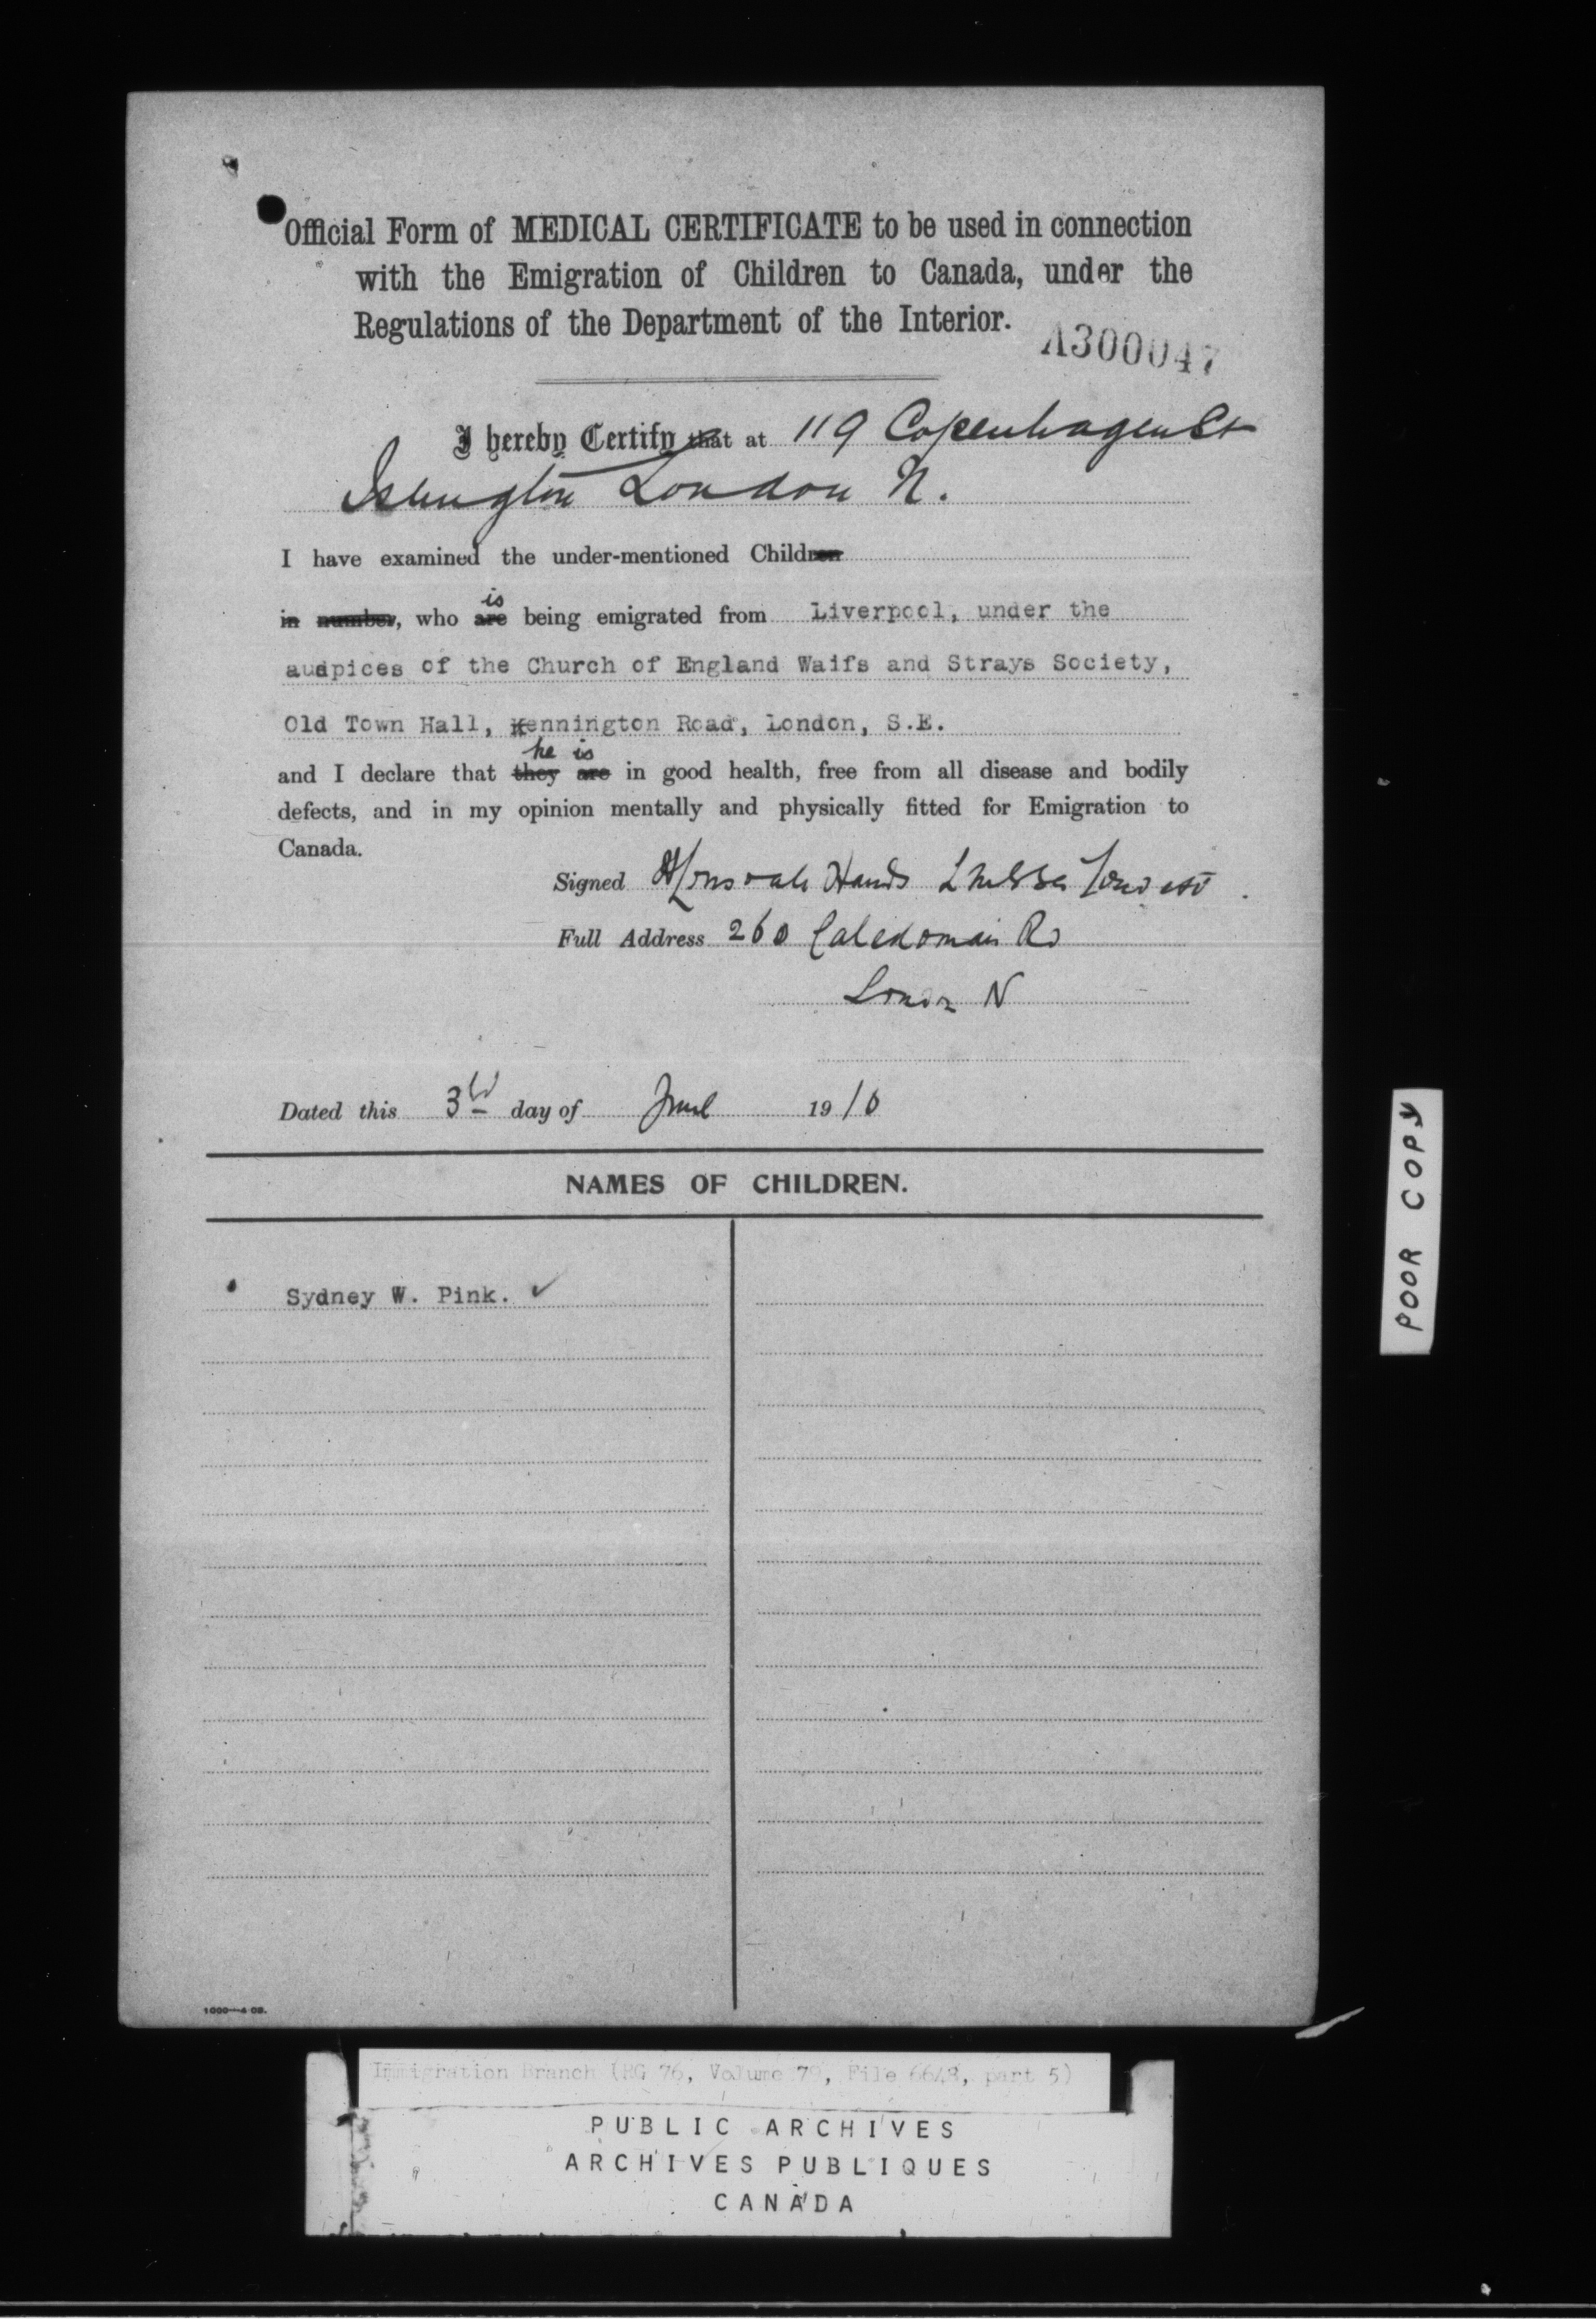 Official Form of MEDICAL CERTIFICATE to be used in connection
with the Emigration of Children to Canada, under the
Regulations of the Department of the Interior.
A300047
I hereby Certify that at 119 Copenhagen St
Islington London N.
I have examined the under-mentioned Children
in number, who are is being emigrated from Liverpool, under the
auspices of the Church of England Waifs and Strays Society,
Old Town Hall, Kennington Road, London, S.E.
and I declare that they are he is in good health, free from all disease and bodily
defects, and in my opinion mentally and physically fitted for Emigration to
Canada.
Signed Hands
Full Address 260 Caledonian Rd
London N
Dated this 3rd day of June 1910
NAMES OF CHILDREN.
Sydney W. Pink. ✓
1000—4 08.
POOR COPY
Immigration Branch (RG 76, Volume 79, File 6648, part 5)
PUBLIC ARCHIVES
ARCHIVES PUBLIQUES
CANADA